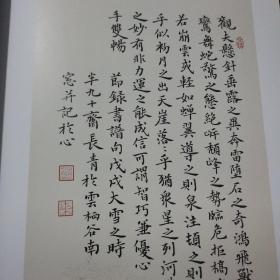 觀夫懸針垂露之異奔雷隕石之奇鴻飛獸
鸞舞蛇驚之態絕岸頹峰之勢臨危拒槁
若崩雲或輕如蟬翼導之則泉注頓之則
乎似初月之出天崖落々乎猶眾星之列河
之妙有非力運之能成信可謂智巧兼優心
手雙暢
節錄書譜句戊戌大雪之時
半九十齋長青於雲栖谷南
窗并記於心